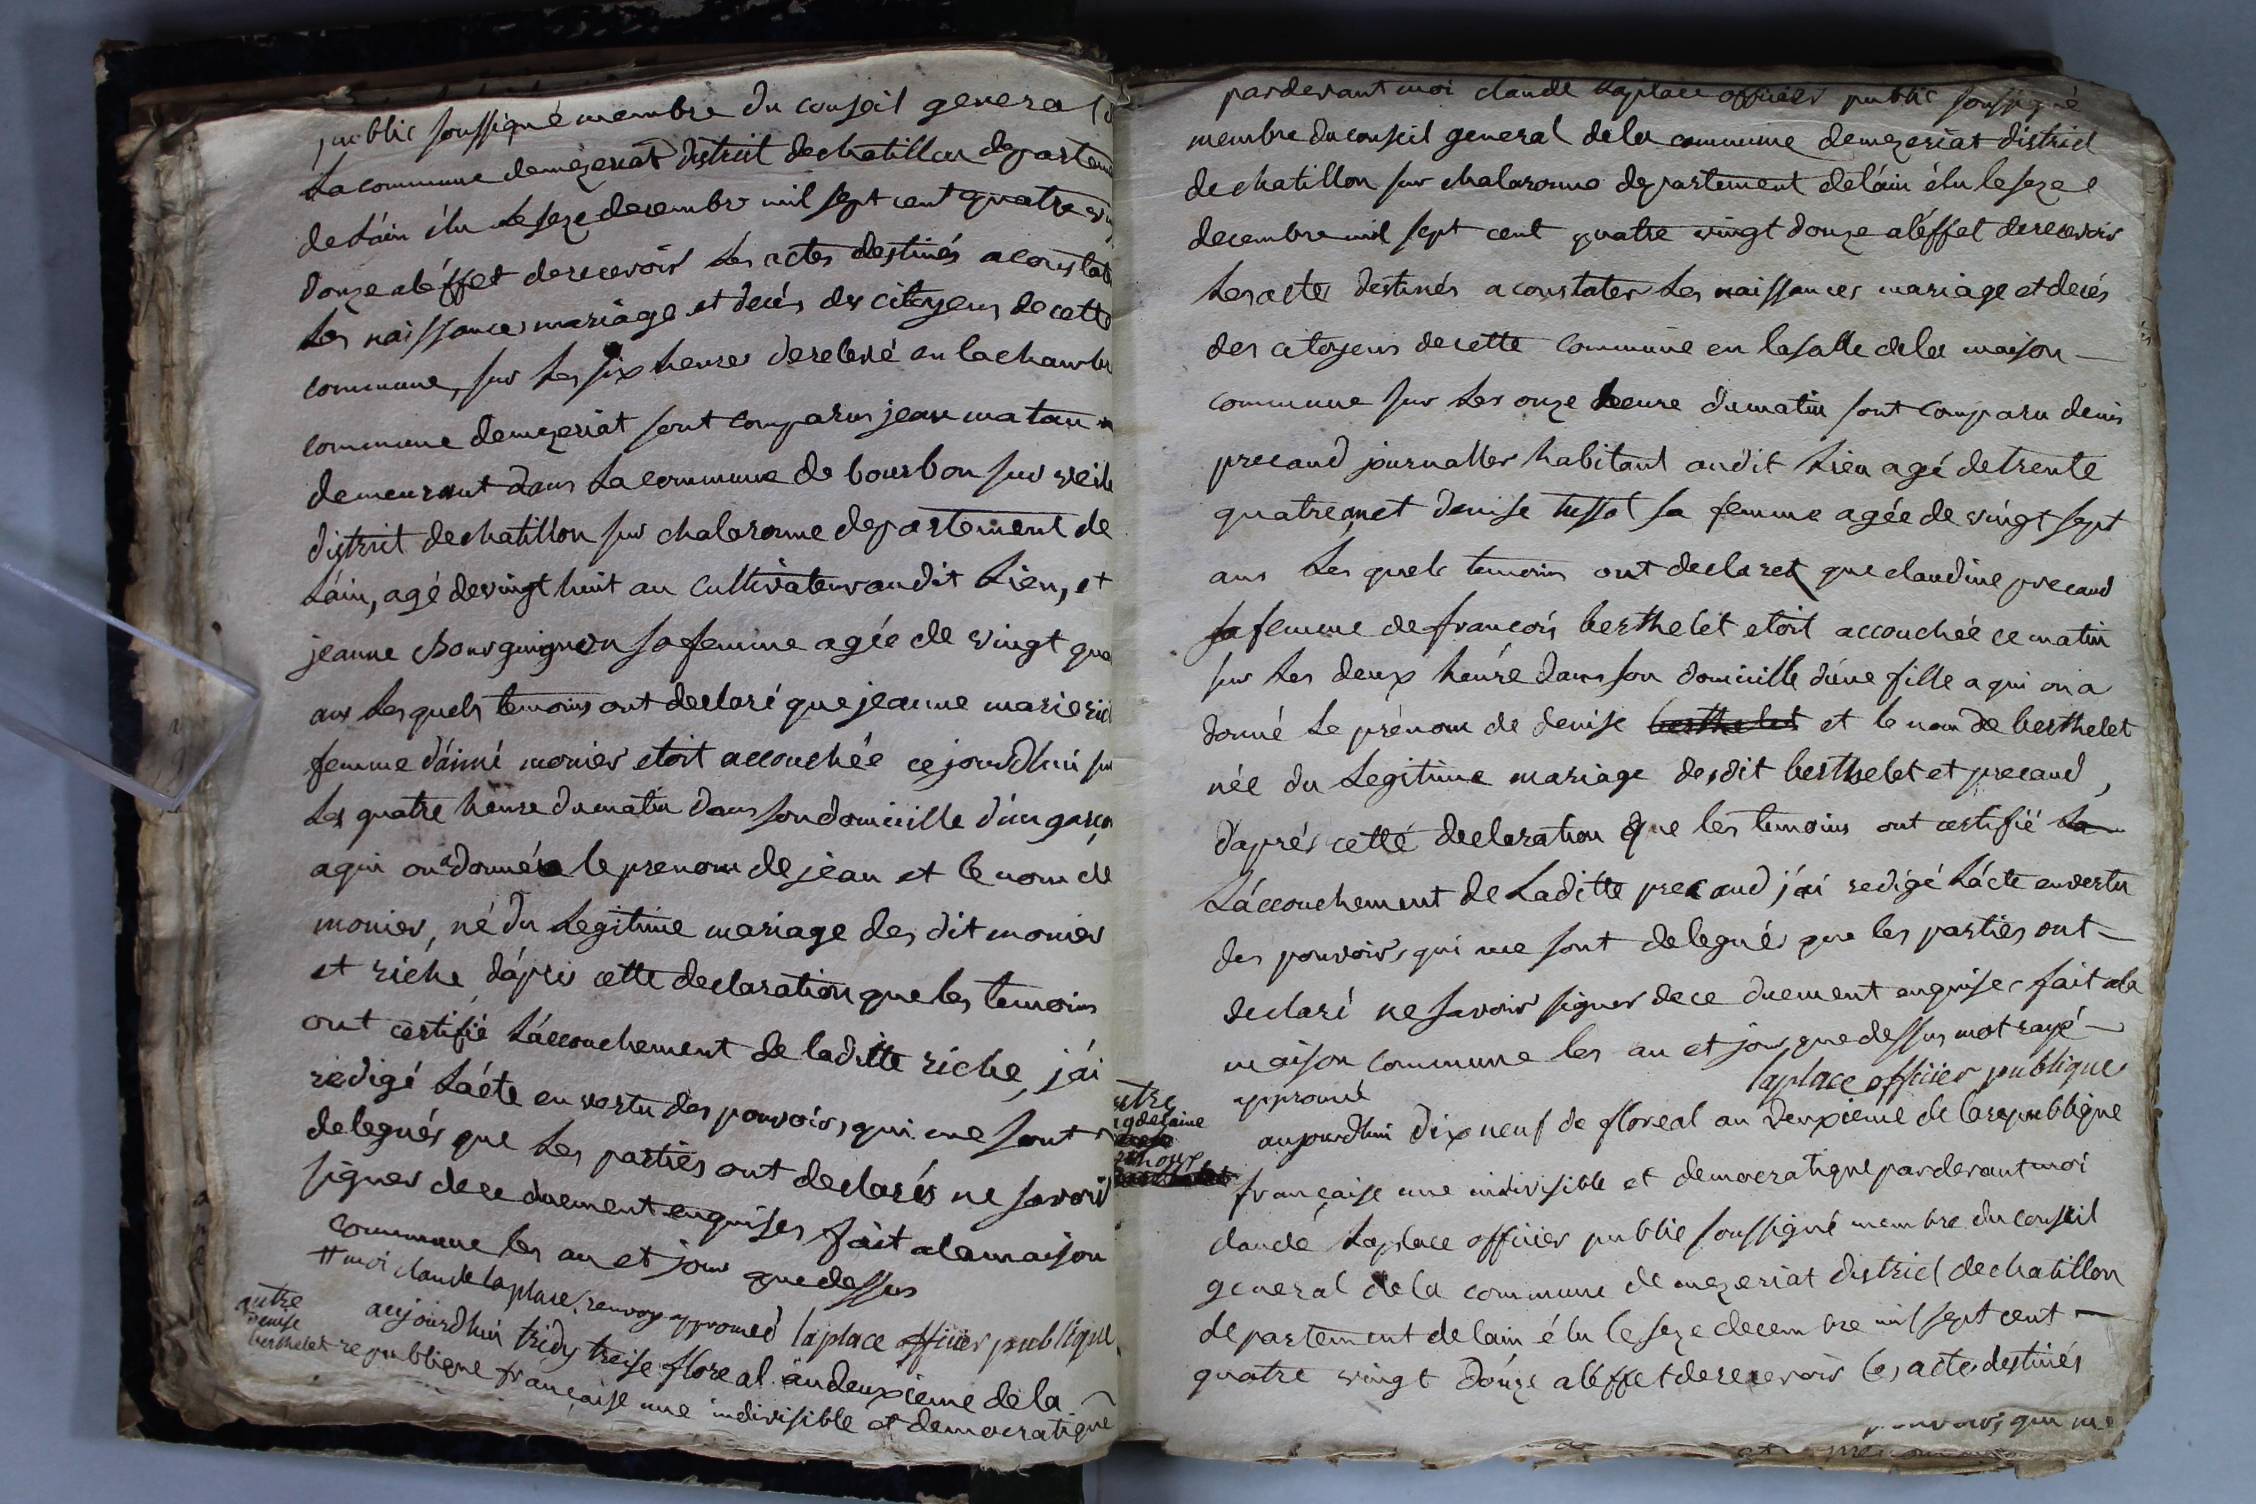 public soussigné membre du conseil general
La commune demezeriat district dechatillon departem
deláin élu Le seze decembre mil sept cent quatre vin
donze aléffet derecevoir Les actes destinés aconstat
Les naissances mariage et decés des citoyens de cette
commune, sur Les six heures derelevé en lachambr
commune demezeriat sont comparus jean matau
demeurant dans La commune de bourbon sur veile
district dechatillon sur chalaronne departement de
Láin, agé devingt huit an cultivateur audit Lieu, et
jeanne Bourguignon sa femme agée de vingt qua
ans Lesquels temoins ont declaré que jeanne marie rich
femme dáimé monier etoit accouchée ce jourdhui sur
Les quatre heure dumatin dans son domicille dún garço
aqui on a donné le prenom de jean et le nom de
monier, né du Legitime mariage des dit monier
et riche dáprés cette declaration que les temoins
ont certifié Láccouchement de laditte riche, j'ái
redigé Lácte en vertu des pouvoirs, qui me sont
delegués que Les parties ont declarés ne savoir
signer de ce duement enquises fait alamaison
commune les an et jour que dessus
# moi claude laplace, renvoy approuvé laplace officier publique
autre
denise
berthelet
aujourdhui tridy treise floreal an deuxieme de la
republique française une indivisible et democratique
pardevant moi claude Laplace officier public soussigné
membre du conseil general dela commune demezeriat district
de chatillon sur chalaronne departement deláin élu le seze
decembre mil sept cent quatre vingt donze aléffet derecevoir
Les actes destinés aconstater Les naissances mariage et decés
des citoyens decette commune en lasalle dela maison
commune sur Les onze heure dumatin sont comparu denis
precaud journallier habitant audit Lieu agé detrente
quatre an et denise tussot sa femme agée de vingt sept
ans Les quels temoins ont declaret que claudine precaud
sa femme de francois berthelet etoit accouchée ce matin
sur Les deux heure dans son domicille d'une fille aqui on a
donné Le prénom de denise berthelet et le nom de berthelet
née du Legitime mariage des dit berthelet et precaud,
dáprés cetté declaration que les temoins ont certifié La
Láccouchement de Laditte precaud j'ái redigé Lácte en vertu
des pouvoirs, qui me sont delegués que les parties ont
declaré ne savoir signer de ce duement enquises fait ala
maison commune les an et jour que dessus mot rayé
approuvé laplace officier publique
autre
aujourdhui dix neuf de floreal an deuxieme de la republique
française une indivisible et democratique pardevant moi
claude Laplace officier public soussigné membre du conseil
general de la commune de mezeriat district dechatillon
departement delain élu le seze decembre mil sept cent
quatre vingt donze aléffet derecevoir les acte destinés
pouvoirs, qui me